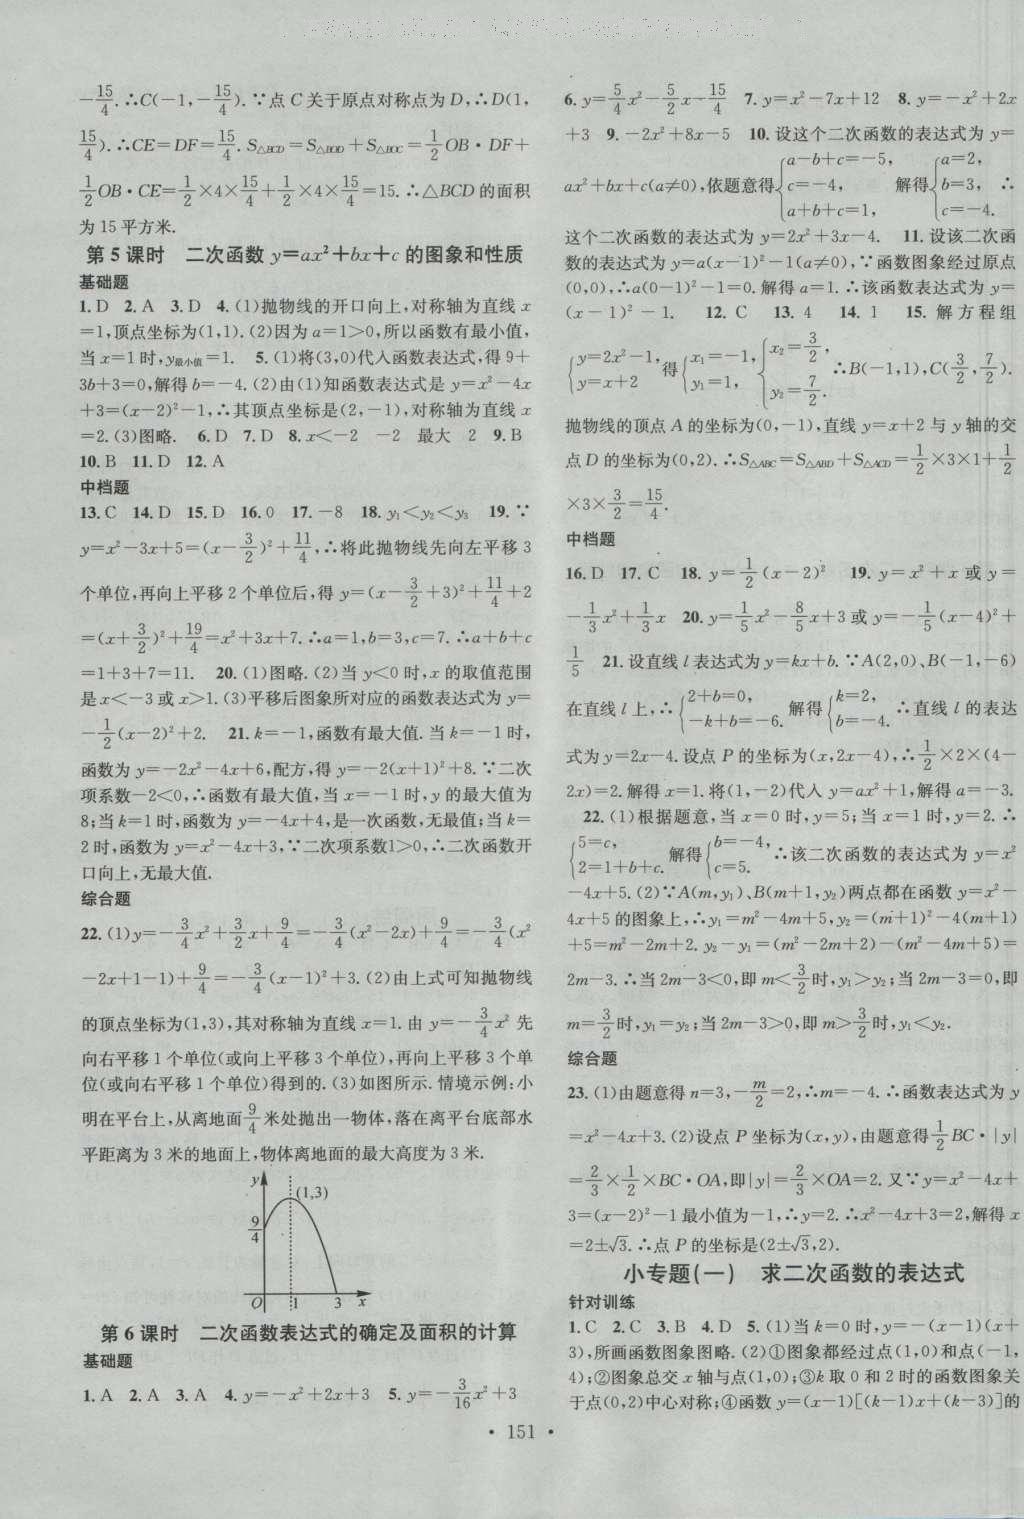 -15/4.∴C(-1,-15/4).∵点 C 关于原点对称点为 D,∴D(1,
15/4).∴CE=DF=15/4.S△BCD=S△BOD+S△BOC=1/2OB·DF+
1/2OB·CE=1/2×4×15/4+1/2×4×15/4=15.∴△BCD 的面积
为 15 平方米.
第 5 课时 二次函数 y=ax²+bx+c 的图象和性质
基础题
1.D 2.A 3.D 4.(1)抛物线的开口向上,对称轴为直线 x
=1,顶点坐标为(1,1).(2)因为 a=1>0,所以函数有最小值,
当 x=1 时,y最小值=1. 5.(1)将(3,0)代入函数表达式,得 9+
3b+3=0,解得 b=-4.(2)由(1)知函数表达式是 y=x²-4x
+3=(x-2)²-1,∴其顶点坐标是(2,-1),对称轴为直线 x
=2.(3)图略. 6.D 7.D 8.x<-2 -2 最大 2 9.B
10.B 11.D 12.A
中档题
13.C 14.D 15.D 16.0 17.-8 18.y₁<y₂<y₃ 19.∵
y=x²-3x+5=(x-3/2)²+11/4,∴将此抛物线先向左平移 3
个单位,再向上平移 2 个单位后,得 y=(x-3/2+3)²+11/4+2
=(x+3/2)²+19/4=x²+3x+7.∴a=1,b=3,c=7.∴a+b+c
=1+3+7=11. 20.(1)图略.(2)当 y<0 时,x 的取值范围
是 x<-3 或 x>1.(3)平移后图象所对应的函数表达式为 y=
-1/2(x-2)²+2. 21.k=-1,函数有最大值.当 k=-1 时,
函数为 y=-2x²-4x+6,配方,得 y=-2(x+1)²+8.∵二次
项系数-2<0,∴函数有最大值,当 x=-1 时,y 的最大值为
8;当 k=1 时,函数为 y=-4x+4,是一次函数,无最值;当 k=
2 时,函数为 y=x²-4x+3,∵二次项系数1>0,∴二次函数开
口向上,无最大值.
综合题
22.(1)y=-3/4x²+3/2x+9/4=-3/4(x²-2x)+9/4=-3/4(x²
-2x+1-1)+9/4=-3/4(x-1)²+3.(2)由上式可知抛物线
的顶点坐标为(1,3),其对称轴为直线 x=1.由 y=-3/4x² 先
向右平移 1 个单位(或向上平移 3 个单位),再向上平移 3 个单
位(或向右平移 1 个单位)得到的.(3)如图所示.情境示例:小
明在平台上,从离地面9/4米处抛出一物体,落在离平台底部水
平距离为 3 米的地面上,物体离地面的最大高度为 3 米.
y
(1,3)
9/4
O 1 3 x
第 6 课时 二次函数表达式的确定及面积的计算
基础题
1.A 2.A 3.A 4.y=-x²+2x+3 5.y=-3/16x²+3
6.y=5/4x²-5/2x-15/4 7.y=x²-7x+12 8.y=-x²+2x
+3 9.-2x²+8x-5 10.设这个二次函数的表达式为 y=
ax²+bx+c(a≠0),依题意得{a-b+c=-5, c=-4, a+b+c=1, 解得{a=2, b=3, c=-4. ∴
这个二次函数的表达式为 y=2x²+3x-4. 11.设该二次函
数的表达式为 y=a(x-1)²-1(a≠0),∵函数图象经过原点
(0,0),∴a(0-1)²-1=0.解得 a=1.∴该函数表达式为 y=
(x-1)²-1. 12.C 13.4 14.1 15.解方程组
{y=2x²-1, y=x+2 得{x₁=-1, y₁=1, {x₂=3/2, y₂=7/2. ∴B(-1,1),C(3/2,7/2).
抛物线的顶点 A 的坐标为(0,-1),直线 y=x+2 与 y 轴的交
点 D 的坐标为(0,2).∴S△ABC=S△ABD+S△ACD=1/2×3×1+1/2
×3×3/2=15/4.
中档题
16.D 17.C 18.y=1/2(x-2)² 19.y=x²+x 或 y=
-1/3x²+1/3x 20.y=1/5x²-8/5x+3 或 y=-1/5(x-4)²+
1/5 21.设直线 l 表达式为 y=kx+b.∵A(2,0)、B(-1,-6)
在直线 l 上,∴{2+b=0, -k+b=-6. 解得{k=2, b=-4. ∴直线 l 的表达
式为 y=2x-4.设点 P 的坐标为(x,2x-4),∴1/2×2×(4-
2x)=2.解得 x=1.将(1,-2)代入 y=ax²+1,解得 a=-3.
22.(1)根据题意,当 x=0 时,y=5;当 x=1 时,y=2.∴
{5=c, 2=1+b+c. 解得{b=-4, c=5. ∴该二次函数的表达式为 y=x²
-4x+5.(2)∵A(m,y₁)、B(m+1,y₂)两点都在函数 y=x²-
4x+5 的图象上,∴y₁=m²-4m+5,y₂=(m+1)²-4(m+1)
+5=m²-2m+2.y₂-y₁=(m²-2m+2)-(m²-4m+5)=
2m-3.∴当 2m-3<0,即 m<3/2时,y₁>y₂;当 2m-3=0,即
m=3/2时,y₁=y₂;当 2m-3>0,即 m>3/2时,y₁<y₂.
综合题
23.(1)由题意得 n=3,-m/2=2,∴m=-4.∴函数表达式为 y
=x²-4x+3.(2)设点 P 坐标为(x,y),由题意得1/2BC·|y|
=2/3×1/2×BC·OA,即|y|=2/3×OA=2.又∵y=x²-4x+
3=(x-2)²-1 最小值为-1,∴y=2.∴x²-4x+3=2,解得 x
=2±√3.∴点 P 的坐标是(2±√3,2).
小专题(一) 求二次函数的表达式
针对训练
1.C 2.C 3.B 4.D 5.(1)当 k=0 时,y=-(x-1)(x+
3),所画函数图象图略.(2)①图象都经过点(1,0)和点(-1,
4);②图象总交 x 轴与点(1,0);③k 取 0 和 2 时的函数图象关
于点(0,2)中心对称;④函数 y=(x-1)[(k-1)x+(k-3)]的
• 151 •